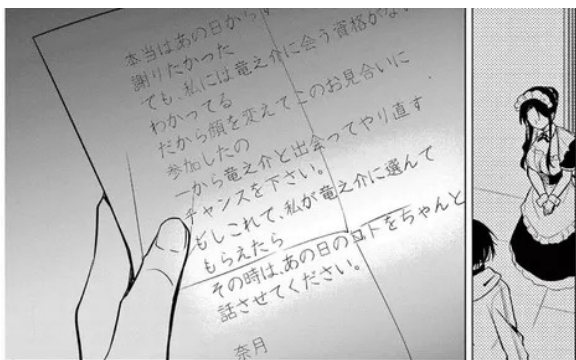 本当はあの日から
謝りたかった
でも、私には竜之介に会う資格がな
わかってる
だから顔を変えてこのお見合いに
参加したの
一から竜之介と出会ってやり直す
チャンスを下さい。
もしこれで、私が竜之介に選んで
もらえたら
その時は、あの日のコトをちゃんと
話させてください。
奈月